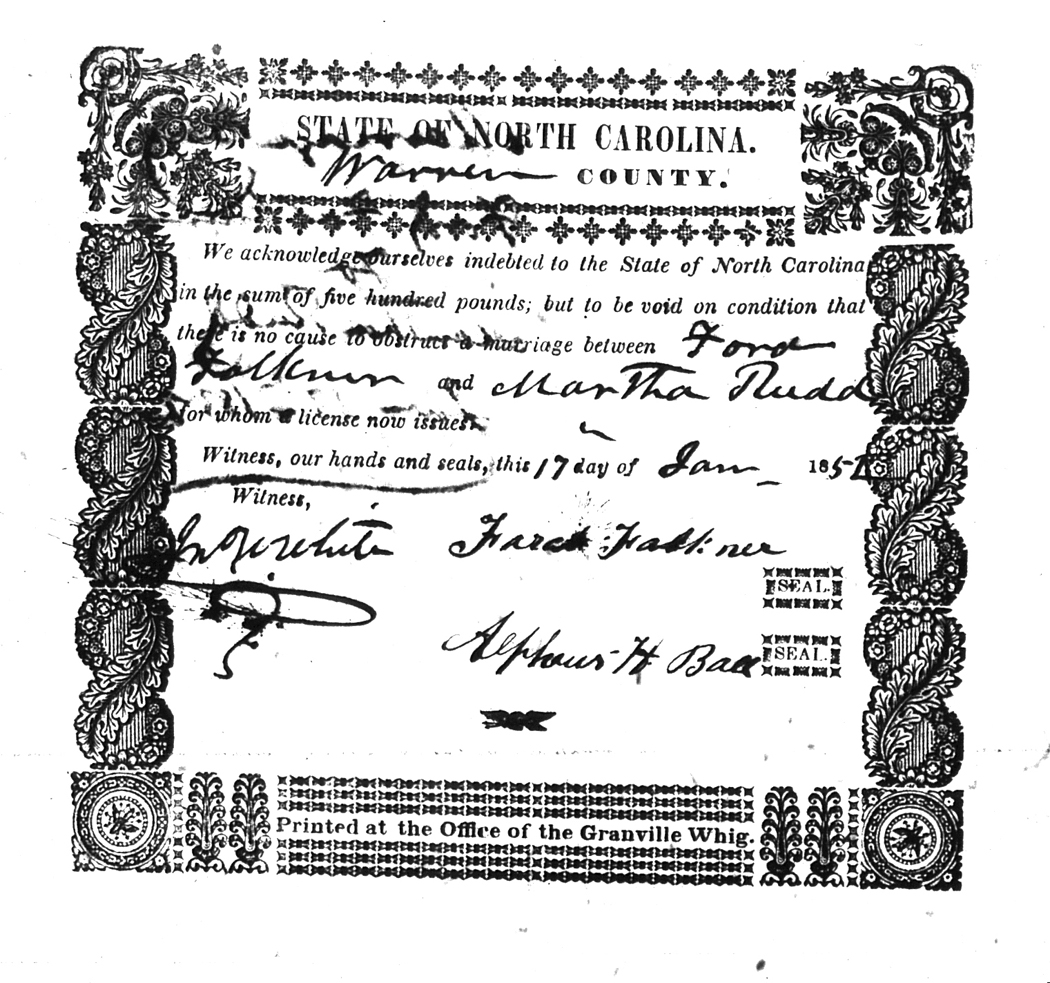 STATE OF NORTH CAROLINA.
Warren COUNTY.
We acknowledge ourselves indebted to the State of North Carolina
in the sum of five hundred pounds; but to be void on condition that
there is no cause to obstruct a marriage between Ford
Falkner and Martha Rudd
for whom a license now issues.
Witness, our hands and seals, this 17 day of Jan 185
Witness,
White Falkner
SEAL.
Alpheus H Ball SEAL.
Printed at the Office of the Granville Whig.